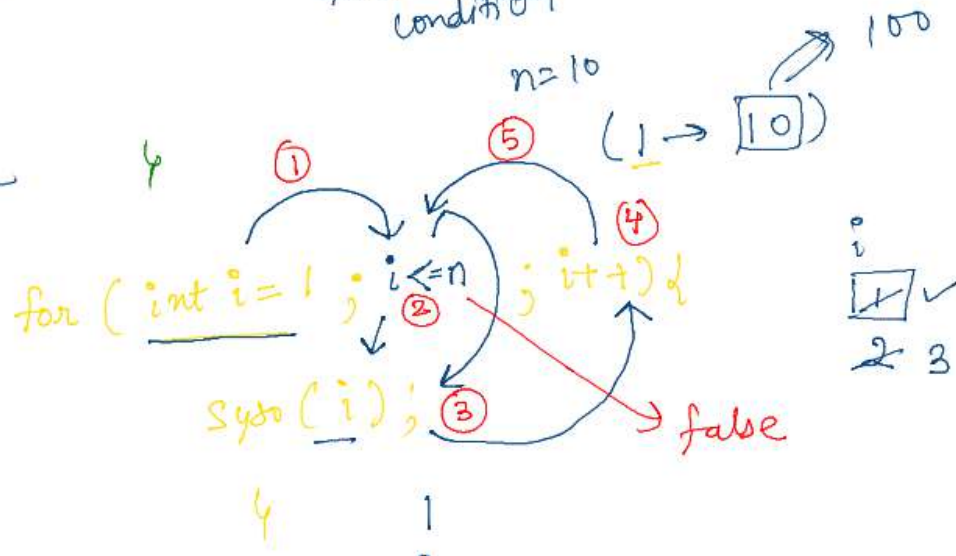 condition
n=10
100
(1 → 10)
}
① ⑤ ④
for ( int i = 1 ; i <= n ; i++) {
②
i
1 ✓
2 3
syso ( i ) ; ③
false
}
1